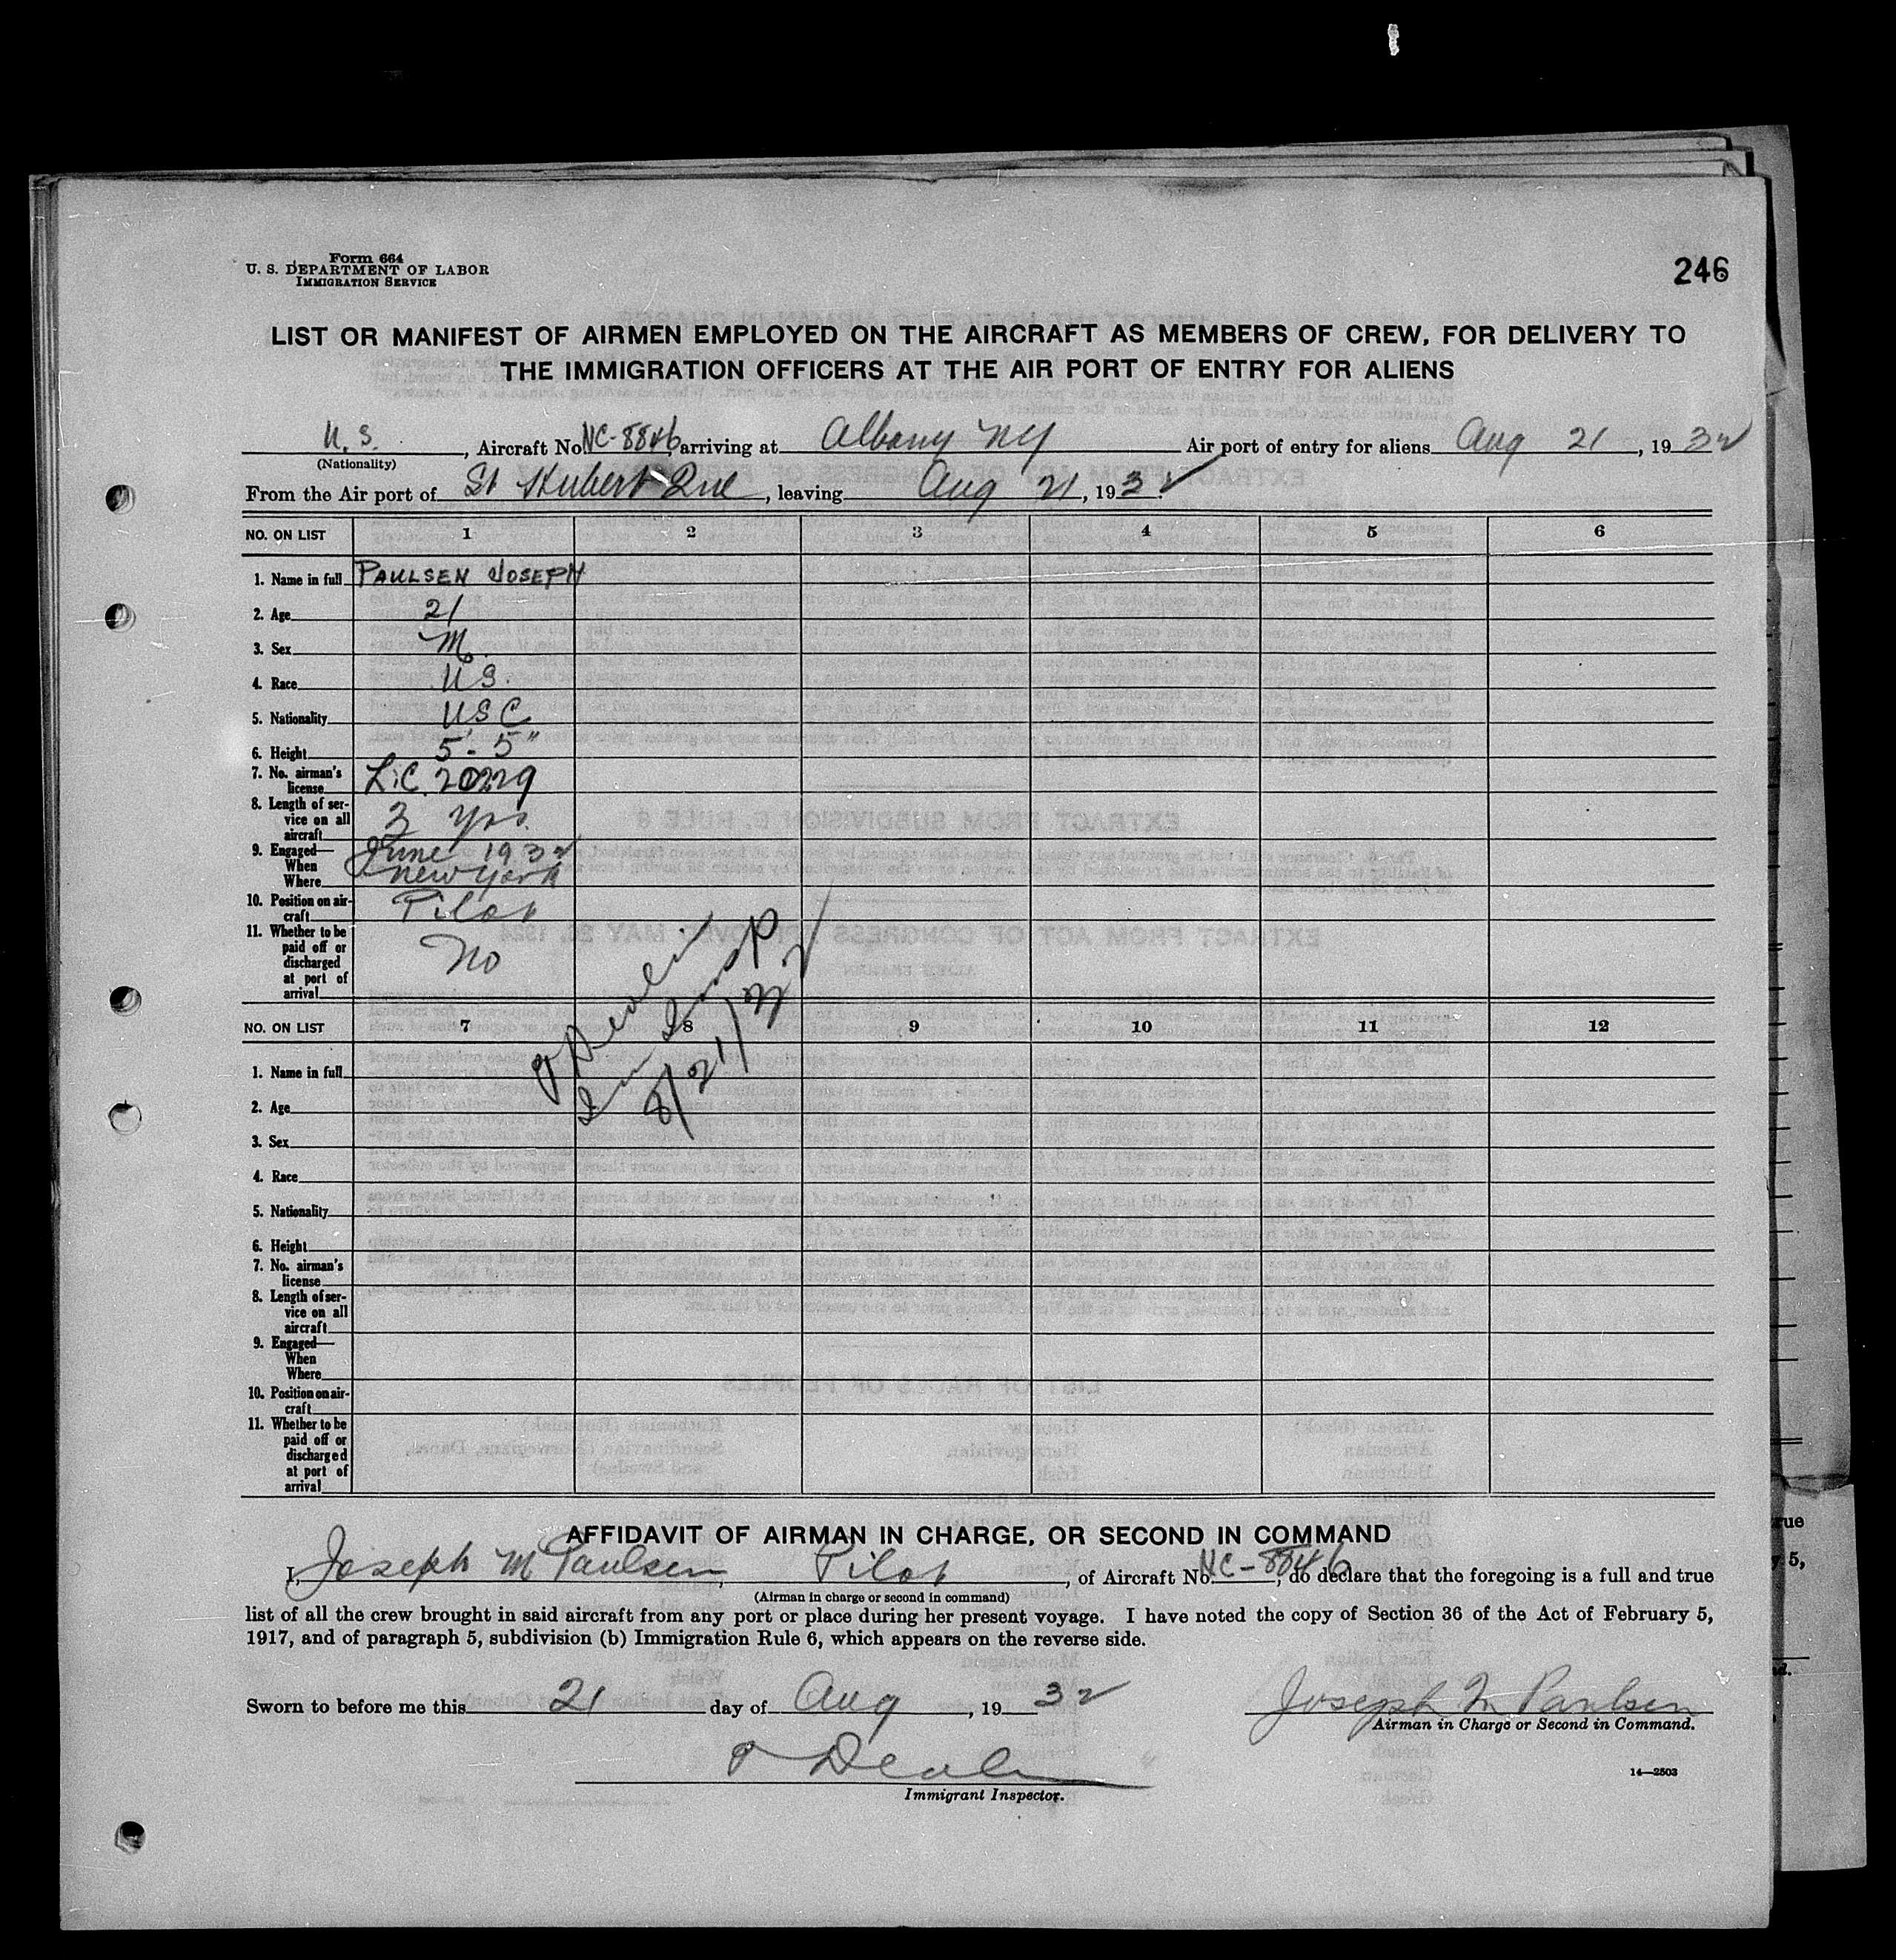 Form 664
U. S. DEPARTMENT OF LABOR
IMMIGRATION SERVICE
246
LIST OR MANIFEST OF AIRMEN EMPLOYED ON THE AIRCRAFT AS MEMBERS OF CREW, FOR DELIVERY TO
THE IMMIGRATION OFFICERS AT THE AIR PORT OF ENTRY FOR ALIENS
U. S., Aircraft No. NC-8846, arriving at Albany NY Air port of entry for aliens Aug 21, 1932
(Nationality)
From the Air port of St Hubert Que, leaving Aug 21, 1932
NO. ON LIST 1 2 3 4 5 6
1. Name in full PAULSEN JOSEPH
2. Age 21
3. Sex M.
4. Race U.S.
5. Nationality U S C
6. Height 5 - 5"
7. No. airman's
license Lic.
8. Length of ser-
vice on all
aircraft 3 yrs.
9. Engaged—
When June 1932
Where New York
10. Position on air-
craft Pilot
11. Whether to be
paid off or
discharged
at port of
arrival No
Devlin
Imm Insp
8/21/32
NO. ON LIST 7 8 9 10 11 12
1. Name in full
2. Age
3. Sex
4. Race
5. Nationality
6. Height
7. No. airman's
license
8. Length of ser-
vice on all
aircraft
9. Engaged—
When
Where
10. Position on air-
craft
11. Whether to be
paid off or
discharged
at port of
arrival
AFFIDAVIT OF AIRMAN IN CHARGE, OR SECOND IN COMMAND
I, Joseph M Paulsen, Pilot, of Aircraft No. NC-8846, do declare that the foregoing is a full and true
(Airman in charge or second in command)
list of all the crew brought in said aircraft from any port or place during her present voyage. I have noted the copy of Section 36 of the Act of February 5,
1917, and of paragraph 5, subdivision (b) Immigration Rule 6, which appears on the reverse side.
Sworn to before me this 21 day of Aug, 1932
Joseph M Paulsen
Airman in Charge or Second in Command.
Devlin
Immigrant Inspector.
14—2503